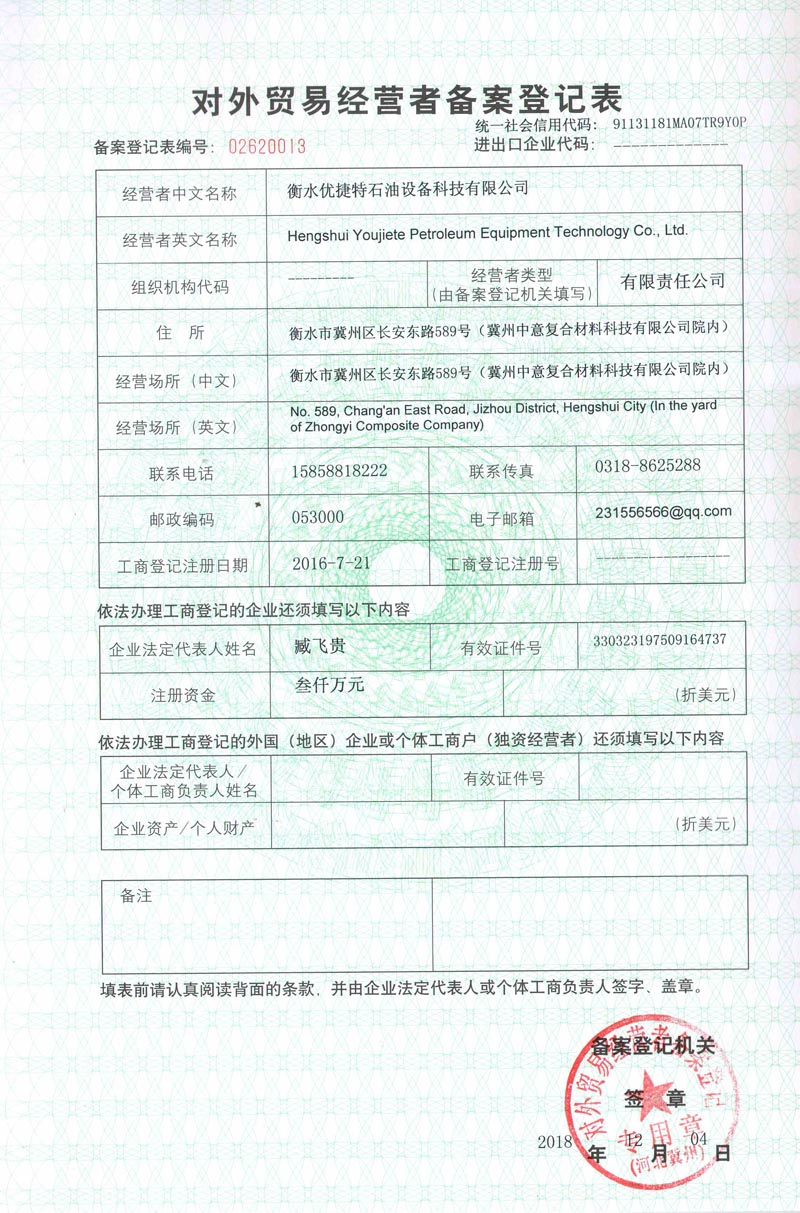 对外贸易经营者备案登记表
统一社会信用代码： 91131181MA07TR9Y0P
备案登记表编号： 02620013
进出口企业代码： -------------
经营者中文名称 衡水优捷特石油设备科技有限公司
经营者英文名称 Hengshui Youjiete Petroleum Equipment Technology Co., Ltd.
组织机构代码 --------- 经营者类型 有限责任公司
(由备案登记机关填写)
住 所 衡水市冀州区长安东路589号（冀州中意复合材料科技有限公司院内）
经营场所（中文） 衡水市冀州区长安东路589号（冀州中意复合材料科技有限公司院内）
经营场所（英文） No. 589, Chang'an East Road, Jizhou District, Hengshui City (In the yard
of Zhongyi Composite Company)
联系电话 15858818222 联系传真 0318-8625288
邮政编码 053000 电子邮箱 231556566@qq.com
工商登记注册日期 2016-7-21 工商登记注册号 ------------------
依法办理工商登记的企业还须填写以下内容
企业法定代表人姓名 臧飞贵 有效证件号 330323197509164737
注册资金 叁仟万元 (折美元)
依法办理工商登记的外国（地区）企业或个体工商户（独资经营者）还须填写以下内容
企业法定代表人/ 有效证件号
个体工商负责人姓名
企业资产/个人财产 (折美元)
备注
填表前请认真阅读背面的条款，并由企业法定代表人或个体工商负责人签字、盖章。
备案登记机关
签 章
2018 年 12 月 04 日
对外贸易经营者备案登记
专用章
(河北冀州)